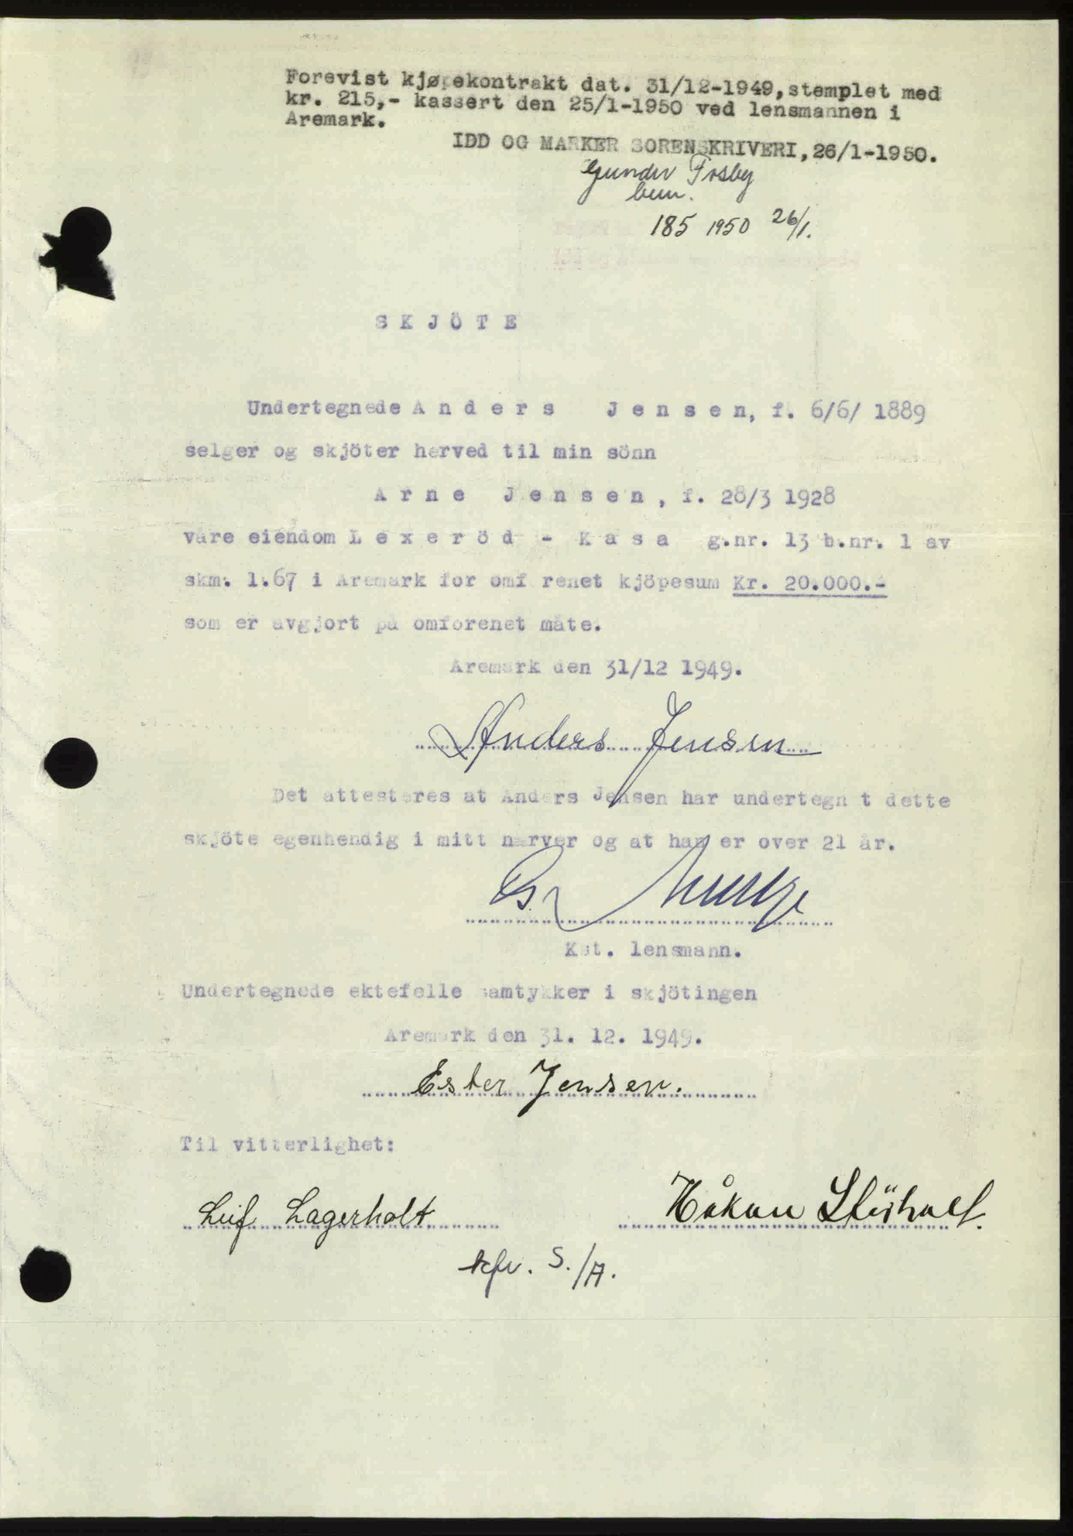 Forevist kjøpekontrakt dat. 31/12-1949, stemplet med
kr. 215,- kassert den 25/1-1950 ved lensmannen i
Aremark.
IDD OG MARKER SORENSKRIVERI, 26/1-1950.
Gundv Fosby
bem.
185 1950 26/1.
SKJÖTE
Undertegnede Anders Jensen, f. 6/6/ 1889
selger og skjöter herved til min sönn
Arne Jensen, f. 28/3 1928
våre eiendom Lexeröd - Kasa g.nr. 13 b.nr. 1 av
skm. 1.67 i Aremark for omf renet kjöpesum Kr. 20.000.-
som er avgjort på omforenet måte.
Aremark den 31/12 1949.
Anders Jensen
Det attesteres at Anders Jensen har undertegn t dette
skjöte egenhendig i mitt nærver og at han er over 21 år.
Kst. lensmann.
Undertegnede ektefelle samtykker i skjötingen
Aremark den 31. 12. 1949.
Ester Jensen.
Til vitterlighet:
Leif Lagerholt Håkon
S./A.